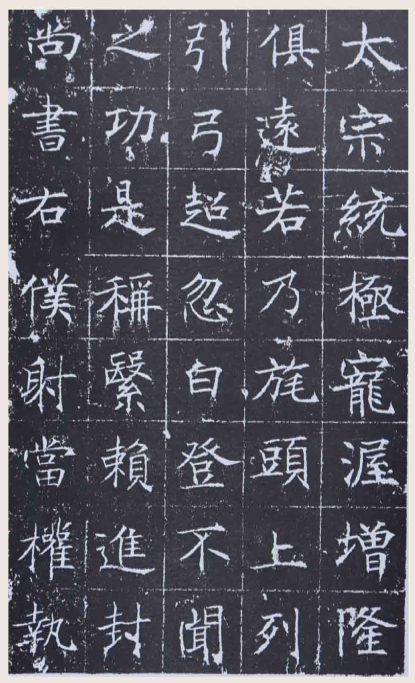 太宗統極寵渥增隆
俱遠若乃旄頭上列
引弓超忽白登不聞
之功是稱緊賴進封
尚書右僕射當權執